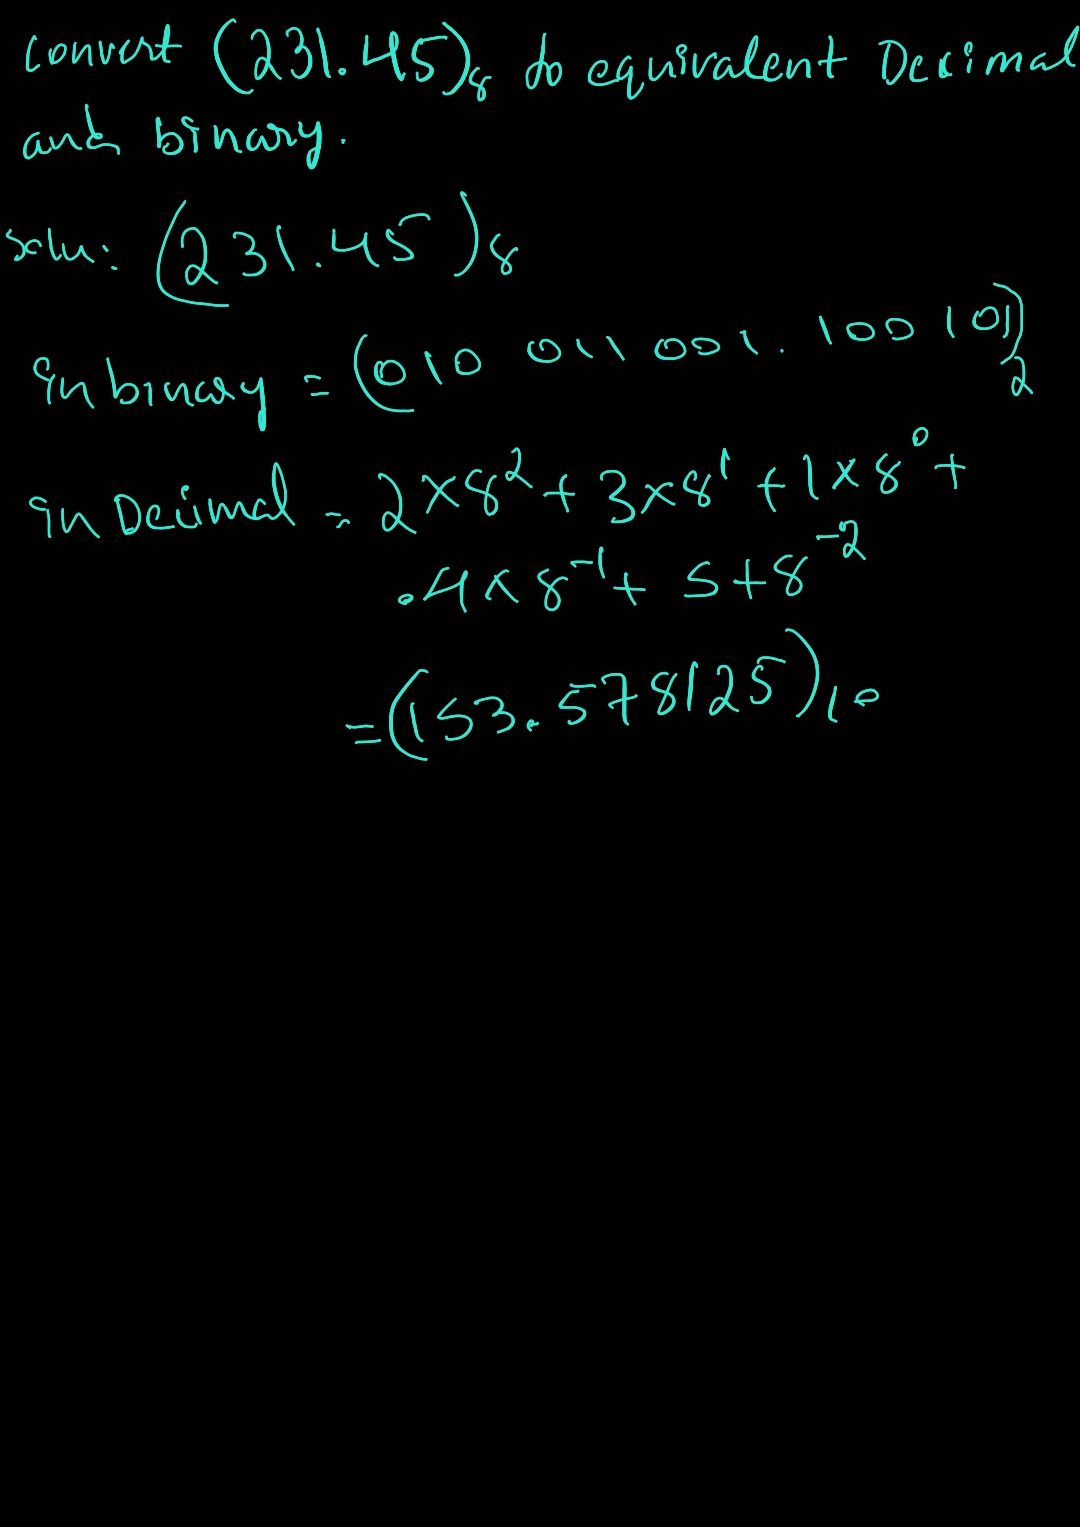 convert (231.45)₈ to equivalent Decimal
and binary.
Solu: (231.45)₈
in binary = (010 011 001.100 101)₂
in Decimal = 2×8²+3×8¹+1×8⁰+
.4×8⁻¹+ 5+8⁻²
=(153.578125)₁₀